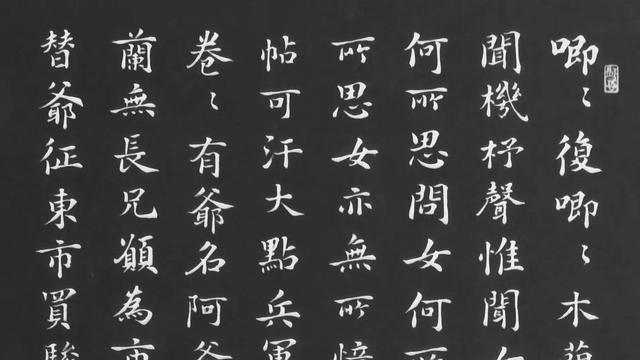 唧〻復唧〻木蘭
聞機杼聲惟聞
何所思問女何所
所思女亦無所憶
帖可汗大點兵軍
卷〻有爺名阿爺
蘭無長兄願為市
替爺征東市買駿